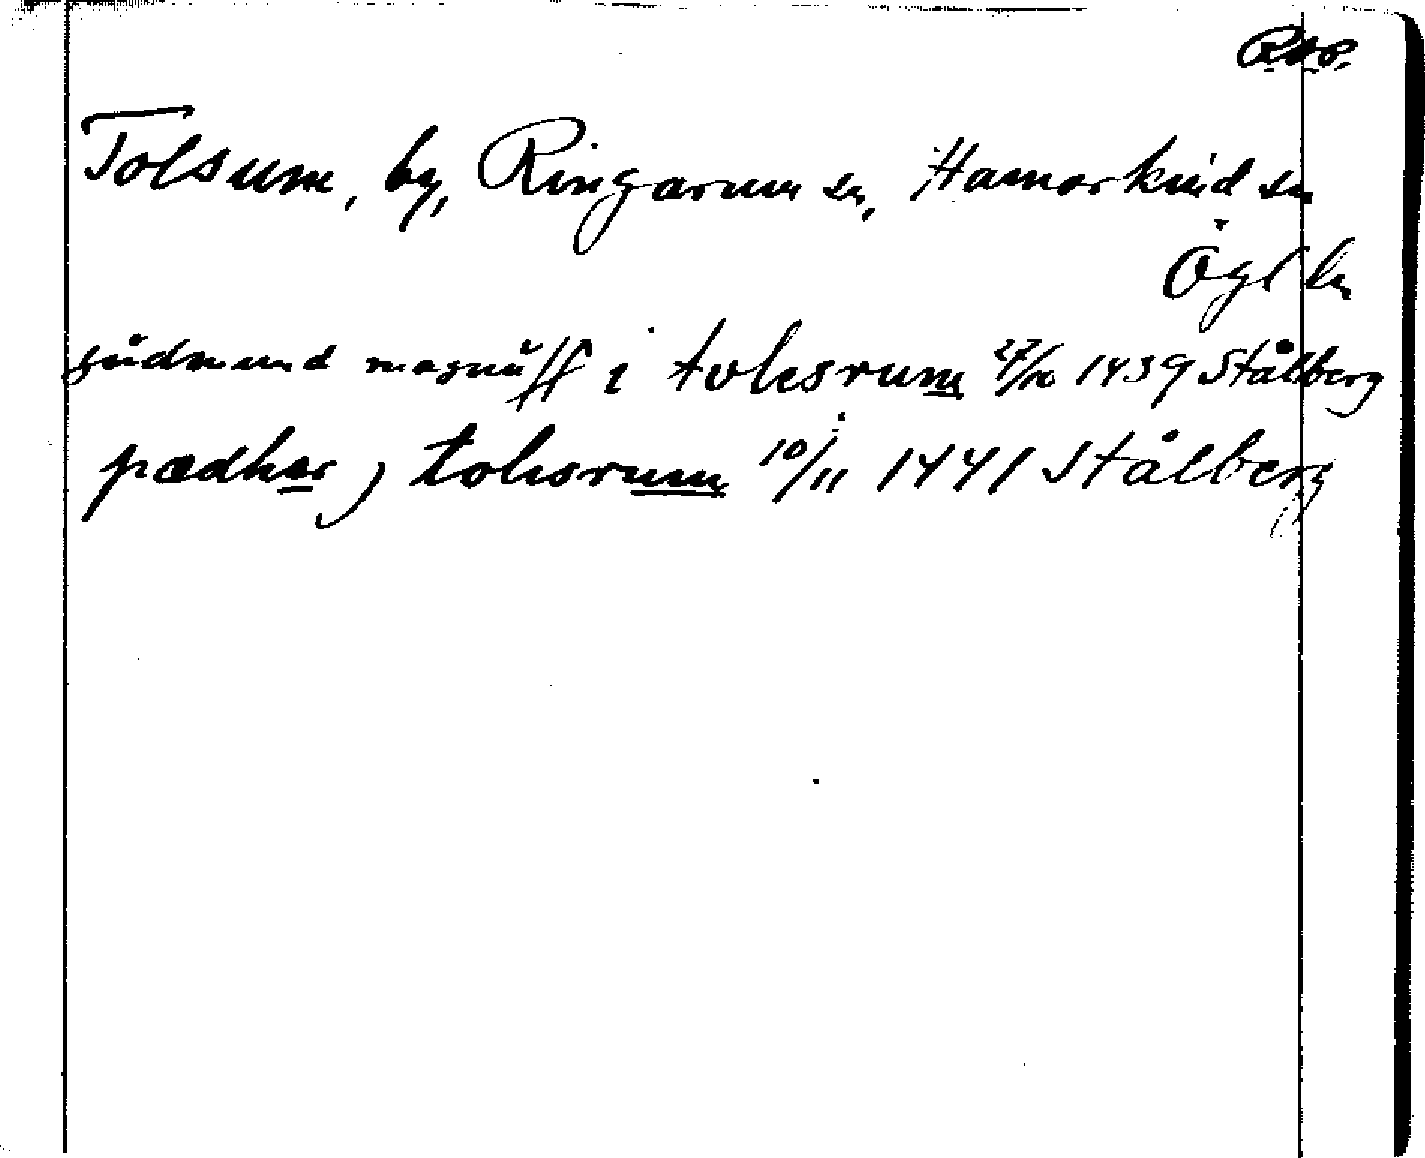 Rep.
Tolsum, by, Ringarum sn, Hamarkind sn
Ögl ln
gudmund magnuss i tolesrum 27/10 1439 Stålberg
pædher j tolesrum 10/11 1441 Stålberg